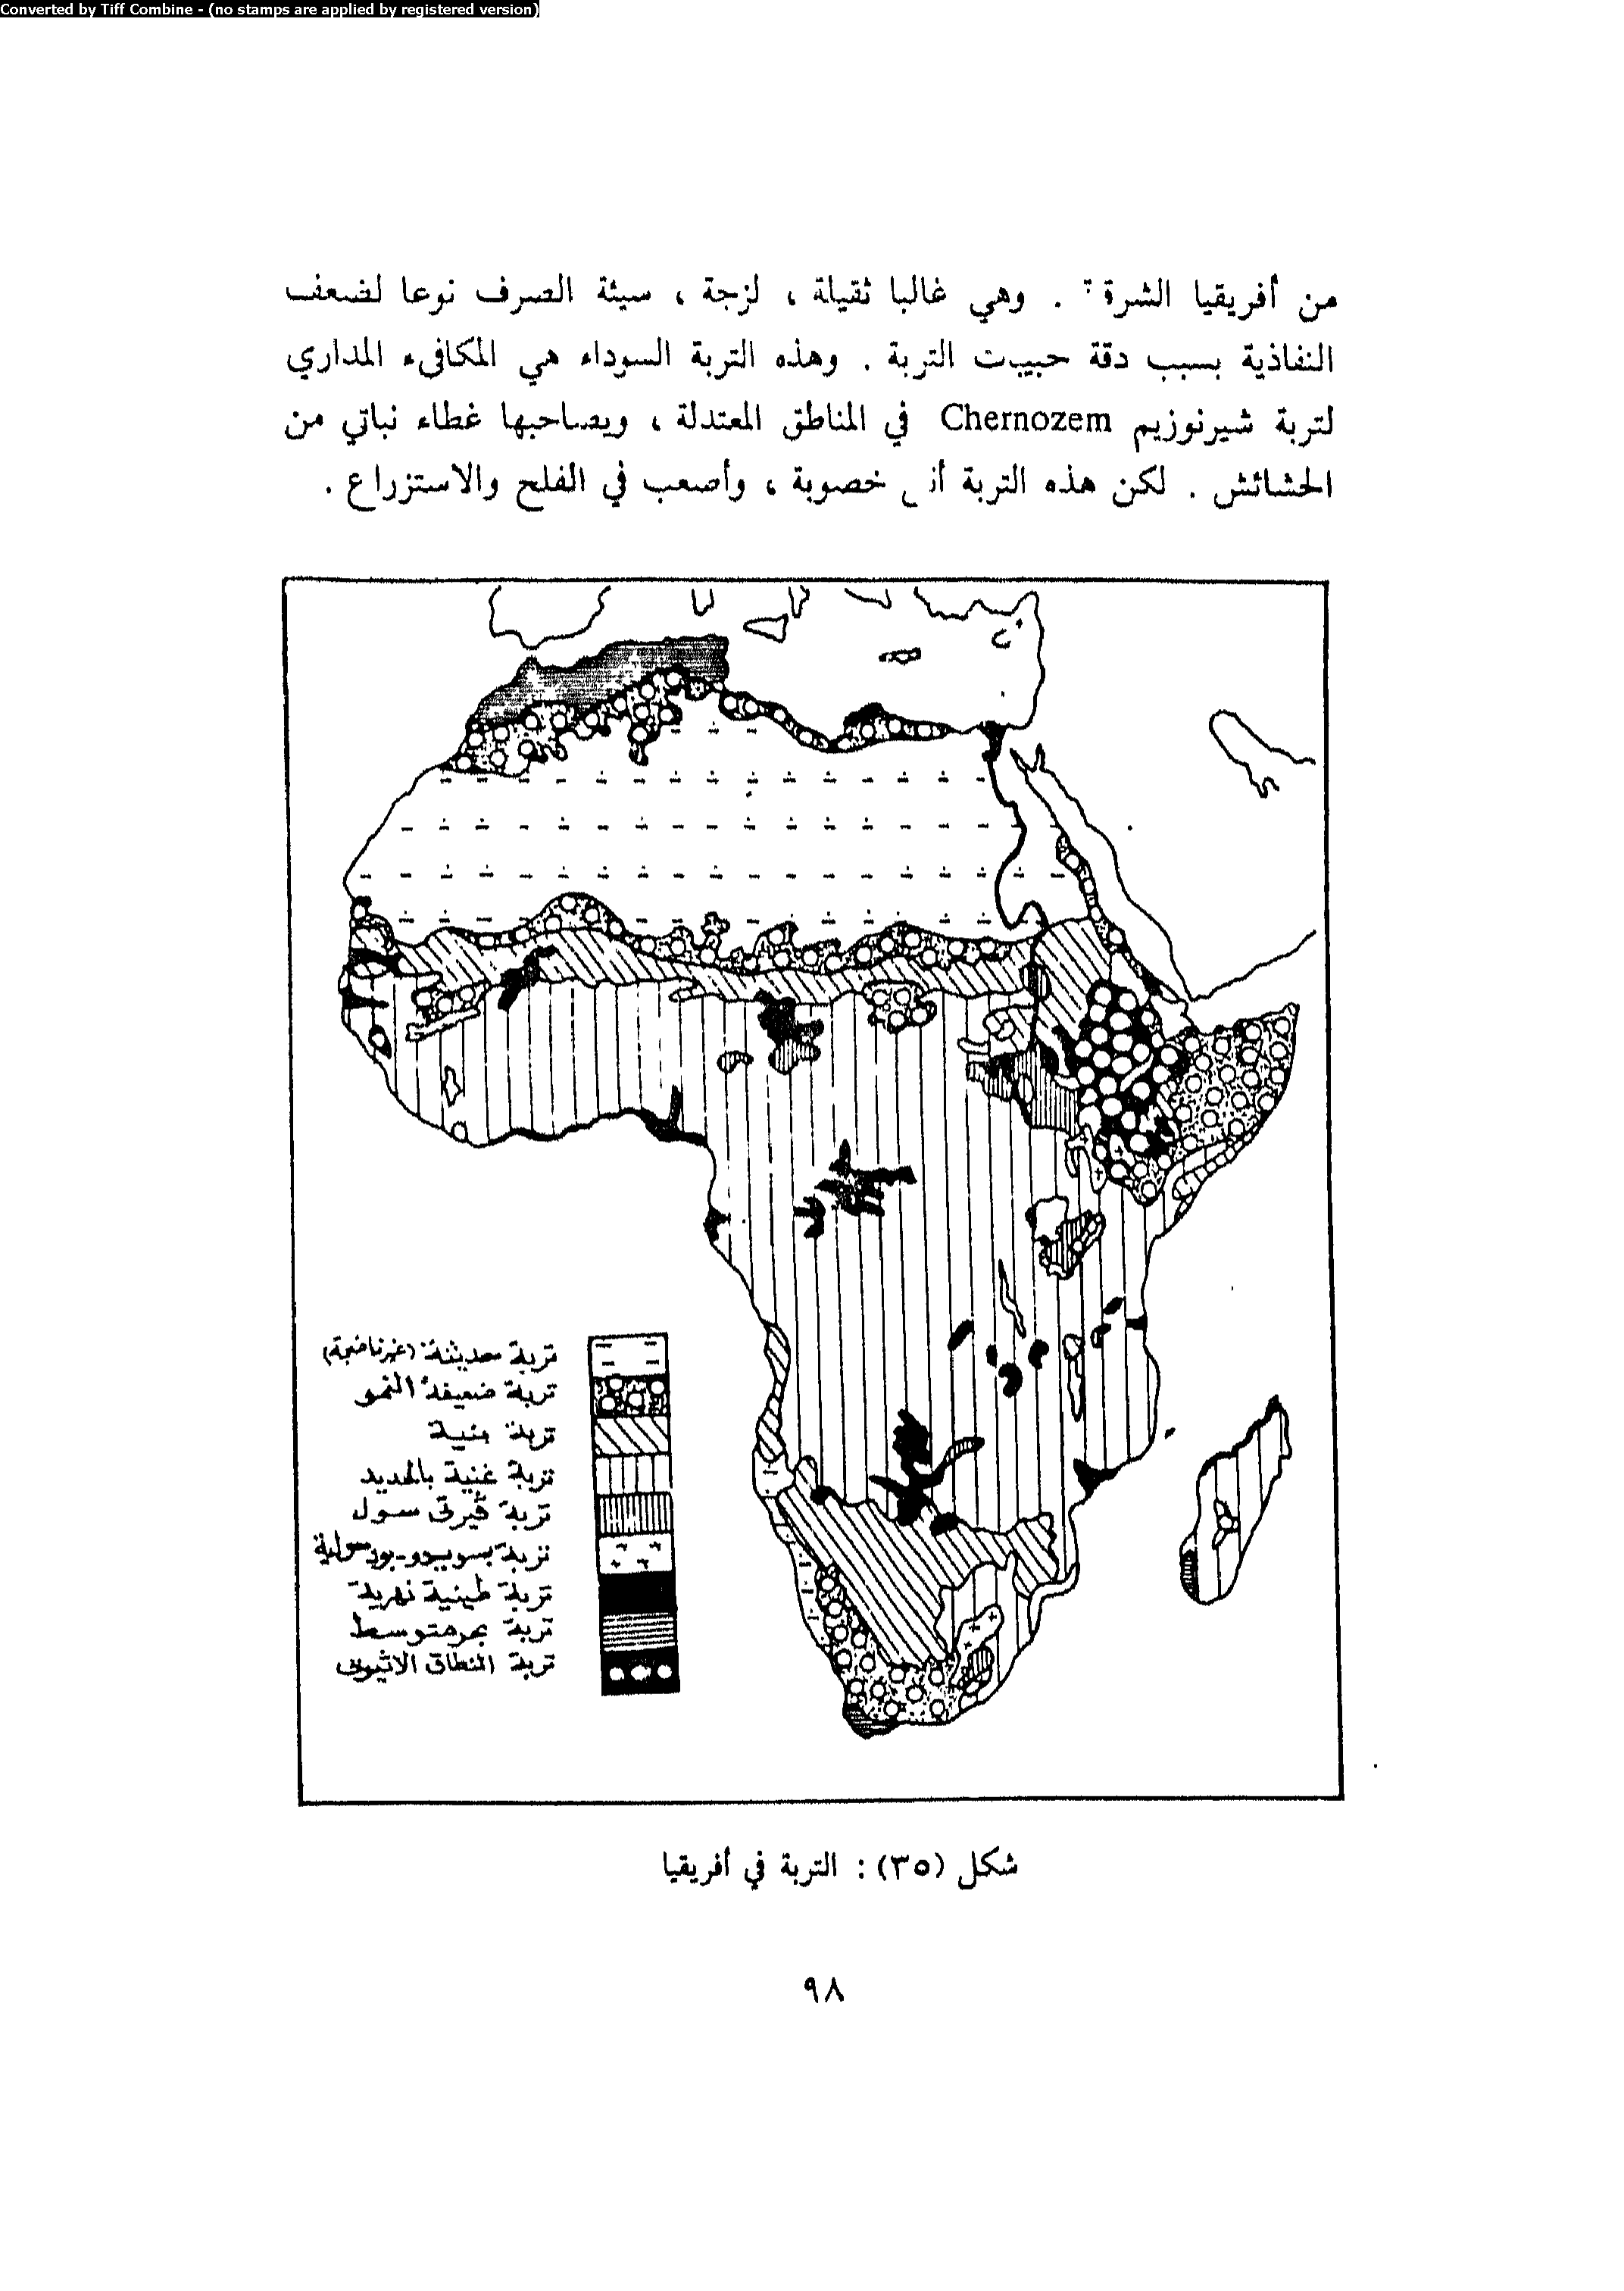 Converted by Tiff Combine - (no stamps are applied by registered version)
من أفريقيا . وهي غالبا ثقيلة ، لزجة ، سيئة الصرف نوعا لضعف
النفاذية بسبب دقة حبيبت التربة . وهذه التربة السوداء هي المكافىء المداري
لتربة شيرنوزيم Chernozem في المناطق المعتدلة ، ويصاحبها غطاء نباتي من
الحشائش . لكن هذه التربة خصوبة ، وأصعب في الفلح والاستزراع .
تربة حديثة (غير ناضجة)
تربة ضعيفة النمو
تربة بنية
تربة غنية بالحديد
تربة ڤيرتى سول
تربة بسويدو-بودسولية
تربة طينية نهرية
تربة بحرمتوسط
تربة النطاق الاثيوبى
شكل (٣٥) : التربة في أفريقيا
٩٨